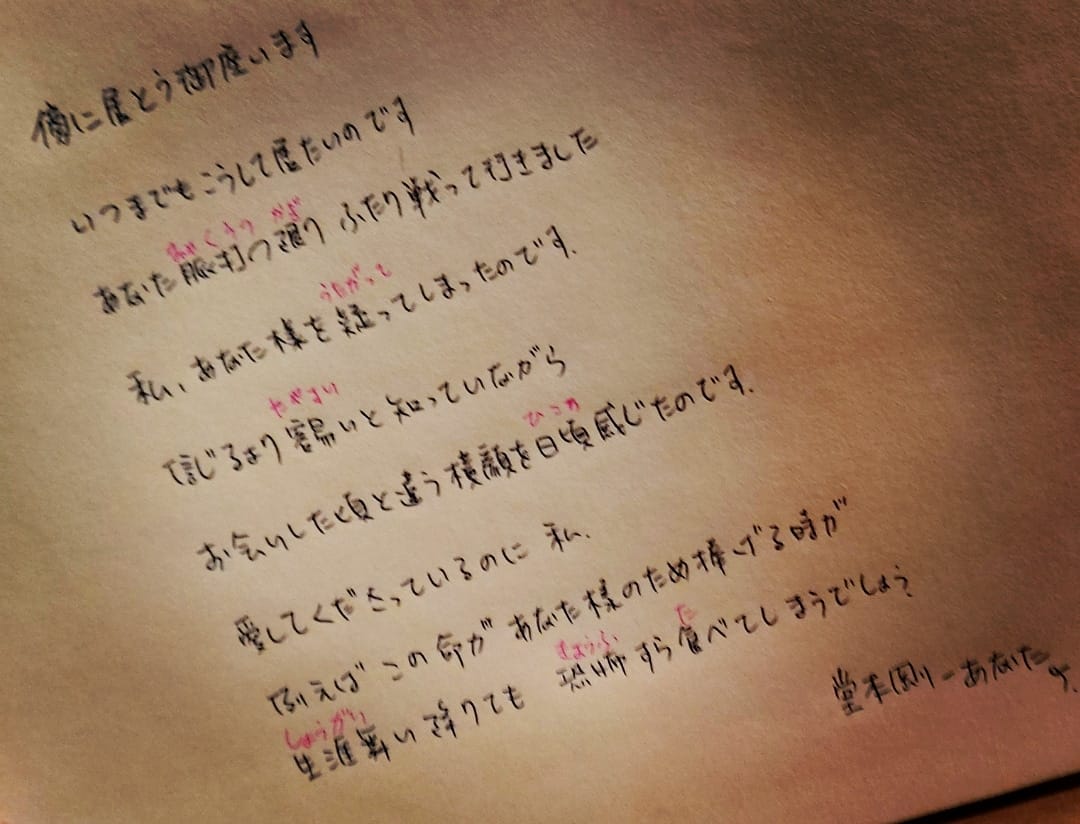 傍に居とう御座います
いつまでもこうして居たいのです
みゃくうつ かぎ
あなた脈打つ限り ふたり戦って行きました
うたがって
私、あなた様を疑ってしまったのです.
たやすい
信じるより容易いと知っていながら
ひごろ
お会いした頃と違う横顔を日頃感じたのです.
愛してくださっているのに 私.
例えば この命が あなた様のため捧げる時が
きょうふ た
生涯舞い降りても 恐怖すら食べてしまうでしょう
しょうがい
堂本剛ーあなた